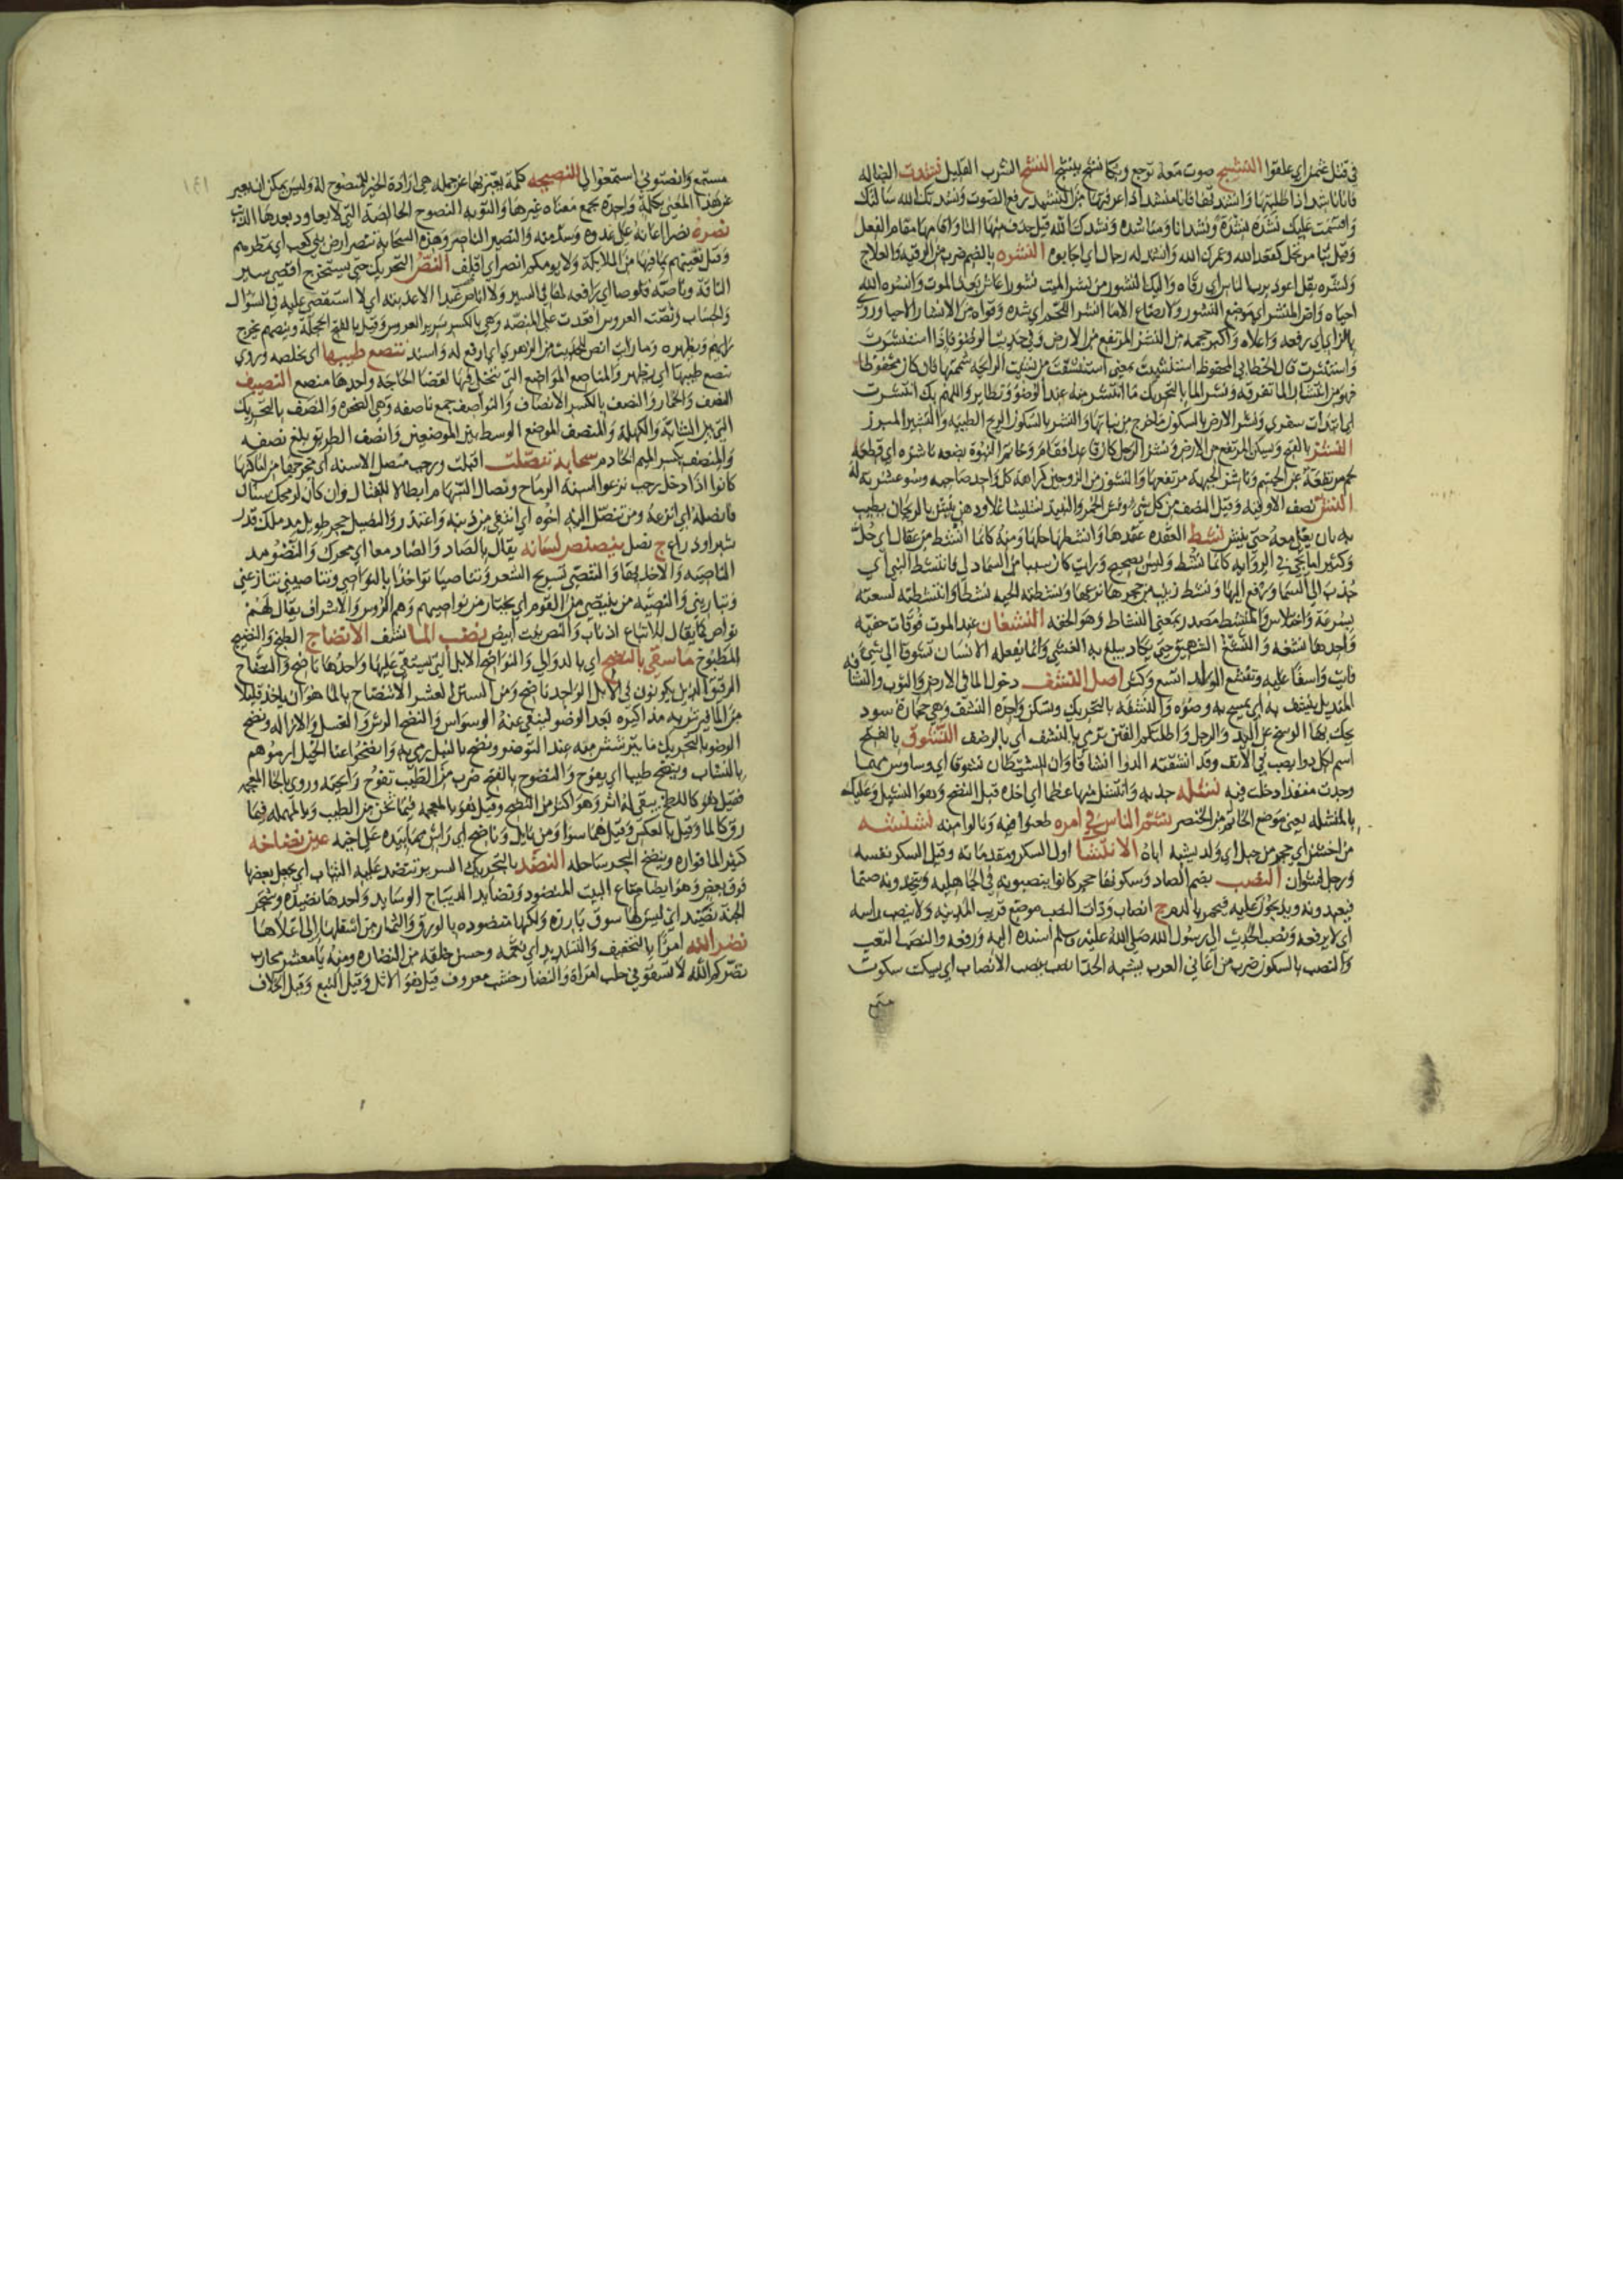 في قتل عثمن اي علقوا النشيج صوت معه توجع وبكا نشج ينشج النشح الشرب القليل نشدت الضاله
فانا ناشد اذا طلبتها وانشدتها فانا منشد اذا عرفتها من النشيد رفع الصوت ونشدتك الله سالتك
واقسمت عليك نشدة ونشدانا ومناشدة ونشدك الله قيل حذف منها التا واقامها مقام الفعل
وقيل بنا مرتجل كقعدك الله وعمرك الله وانشد له رجال اي اجابوه النشره بالضم ضرب من الرقيه والعلاج
ونشره بقل اعوذ برب الناس اي رقاه واليك النشور من نشر الميت نشورا عاش بعد الموت وانشره الله
احياه وارض المنشر اي موضع النشور ولا رضاع الا ما انشر اللحم اي شده وقواه من الانشار الاحيا وروي
بالزاي اي رفعه واعلاه واكبر حجمه من النشز المرتفع من الارض وفي حديث الوضو فاذا استنشرت
واستنثرت قال الخطابي المحفوظ استنشيت بمعني استنشقت من نشيت الرايحه شممتها فان كان محفوظا
فهو من انتشار الما تفرقه ونشر الما بالتحريك ما انتشر منه عند الوضو وتطاير واللهم بك انتشرت
اي ابتدات سفري ونشر الارض بالسكون ما خرج من نباتها والنشر بالسكون الريح الطيبه والتشير الميزر
النشز بالفتح ويسكن المرتفع من الارض ونشز الرجل كان قاعدا فقام وخاتم النبوة بضعه ناشزه اي قطعه
لحم مرتفعة عن الجسم وناشز الجبهه مرتفعها والنشوز من الزوجين كراهة كل واحد صاحبه وسوء عشرته له
النش نصف الاوقيه وقيل النصف من كل شي ونش الخمر والنبيذ نشيشا غلا ودهن ينش بالريحان يطيب
به بان يغلي معه حتي ينش نشط العقده عقدها وانشطها حلها ومنه كانما انشط من عقال اي حل
وكثيرا ما يجي في الروايه كانما نشط وليس بصحيح ورايت كان سببا من السما دلي فانتشط النبي اي
جذب الي السما ورفع اليها ونشط زينب من حجرها نزعها ونشطته الحيه نشطا وانتشطته لسعته
بسرعة واختلاس والمنشط مصدر بمعني النشاط وهو الخفه النشغان عند الموت فوقات خفيه
واحدها نشغه والنشغ الشهيق حتي يكاد يبلغ به الغشي وانما يفعله الانسان تشوقا الي شي
فايت واسفا عليه وتقشع الولد اتسع وكثر اصل النشف دخول الما في الارض والثوب والنشافه
المنديل ينشف به اي يمسح به وضوه والنشفه بالتحريك وتسكن واحدة النشف وهي حجارة سود
يحك بها الوسخ عن اليد والرجل واظلتكم الفتن ترمي بالنشف اي بالرضف النشوق بالفتح
اسم لكل دوا يصب في الانف وقد انشقته الدوا انشاقا وان للشيطان نشوقا اي وساوس مهما
وجدت منفذا دخلت فيه نشله جذبه وانتشل منها عظما اي اخذه قبل النضج وهو النشيل وعليك
بالمنشله يعني موضع الخاتم من الخنصر نشم الناس في امره طعنوا فيه ونالوا منه نشنشه
من اخشن اي حجر من جبل اي ولد يشبه اباه الانتشا اول السكر ومقدماته وقيل السكر نفسه
ورجل نشوان النصب بضم الصاد وسكونها حجر كانوا ينصبونه في الجاهليه ويتخذونه صنما
فيعبدونه ويذبحون عليه فيحمر بالدم ج انصاب وذات النصب موضع قريب المدينه ولا ينصب راسه
اي لا يرفعه ونصب الحديث الي رسول الله صلي الله عليه وسلم اسنده اليه ورفعه والنصب التعب
والنصب بالسكون ضرب من اغاني العرب يشبه الحدا نصب ينصب الانصات اي يسكت سكوت
مستمع
١٤١
مستمع وانصتوني استمعوا لي النصيحه كلمة يعبر بها عن جمله هي ارادة الخير للمنصوح له وليس يمكن ان يعبر
عن هذا المعني بكلمة واحدة يجمع معناه غيرها والتوبه النصوح الخالصة التي لا يعاود بعدها الذنب
نصره نصرا اعانه علي عدوه وشد منه والنصير الناصر وهذه السحابة تنصر ارض بني كعب اي تمطرهم
وقيل نغيثهم بما فيها من الملائكة ولا يومكم انصر اي اقلف النص التحريك حتي يستخرج اقصي سير
الناقة وناصه قلوصا اي رافعه لها في السير ولا اناص عبدا الا عذبته اي لا استقصي عليه في السوال
والحساب ونصت العروس اقعدت علي المنصه وهي بالكسر سرير العروس وقيل بالفتح الحجلة وينصهم يخرج
رايهم ويظهره وما رايت انص للحديث من الزهري اي ارفع له واسند تنصع طيبها اي يخلصه وروي
ينصع طيبها اي يظهر والمناصع المواضع التي يتخلي فيها لقضا الحاجه واحدها منصع النصيف
النصف والخمار والنصف بالكسر الانصاف والنواصف جمع ناصفه وهي الصخره والنصف بالتحريك
التي بين الشابة والكهلة والمنصف الموضع الوسط بين الموضعين وانصف الطريق بلغ نصفه
والمنصف بكسر الميم الخادم سحابه تنصلت اقبلت ورجب منصل الاسنه اي مخرجها من اماكنها
كانوا اذا دخل رجب نزعوا اسنة الرماح ونصال السهام ابطالا للقتال وان كان لرمحك سنان
فانصله اي انزعه ومن تنصل اليه اخوه اي انتفي من ذنبه واعتذر والنصيل حجر طويل مدملك قدر
شبر او ذراع ج نصل ينصنص لسانه يقال بالصاد والضاد معا اي يحرك والنصو مد
الناصيه والاخذ بها والتنصي تسريح الشعر وتناصيا تواخذا بالنواصي وتناصيني تنازعني
وتباريني والنصيه من ينتصي من القوم اي يختار من نواصيهم وهم الروس والاشراف يقال لهم
نواص كما يقال للاتباع اذناب والنصي نبت ابيض نضب الما نشف الانضاج الطبخ والنضيج
المطبوخ ما سقي بالنضح اي بالدوالي والنواضح الابل التي يستقي عليها واحدها ناضح والنضاح
الرقيق الذين يكونون في الابل الواحد ناضح ومن السنن العشر الانتضاح بالما هو ان ياخذ قليلا
من الما فيرش به مذاكيره بعد الوضو لينفي عنه الوسواس والنضح الرش والغسل والازاله ونضح
الوضو بالتحريك ما يترشش منه عند التوضو ونضح بالنبل رمي به وانضحوا عنا الخيل ارموهم
بالنشاب وينضح طيبا اي يفوح والنضوح بالفتح ضرب من الطيب تفوح رايحته وروي بالخا المعجمه
فقيل هو كاللطخ يبقي له اثر وهو اكثر من النضح وقيل هو بالمعجمه فيما ثخن من الطيب وبالمهمله فيما
رق كالما وقيل بالعكس وقيل هما سوا ومن نايل وناضح اي راش مما بيده علي اخيه عين نضاخه
كثير الما فواره وينضخ البحر ساحله النضد بالتحريك السرير تنضد عليه الثياب اي يجعل بعضها
فوق بعض وهو ايضا متاع البيت المنضود ونضايد الديباج الوسايد واحدها نضيده وشجر
الجنة نضيد اي ليس لها سوق بارزه ولكنها منضوده بالورق والثمار من اسفلها الي اعلاها
نضر الله امرا بالتخفيف والتشديد اي نعمه وحسن خلقه من النضاره ومنه يا معشر محارب
نضركم الله لا تسقوني حلب امراة والنضار خشب معروف قيل هو الاثل وقيل النبع وقيل الخلاف